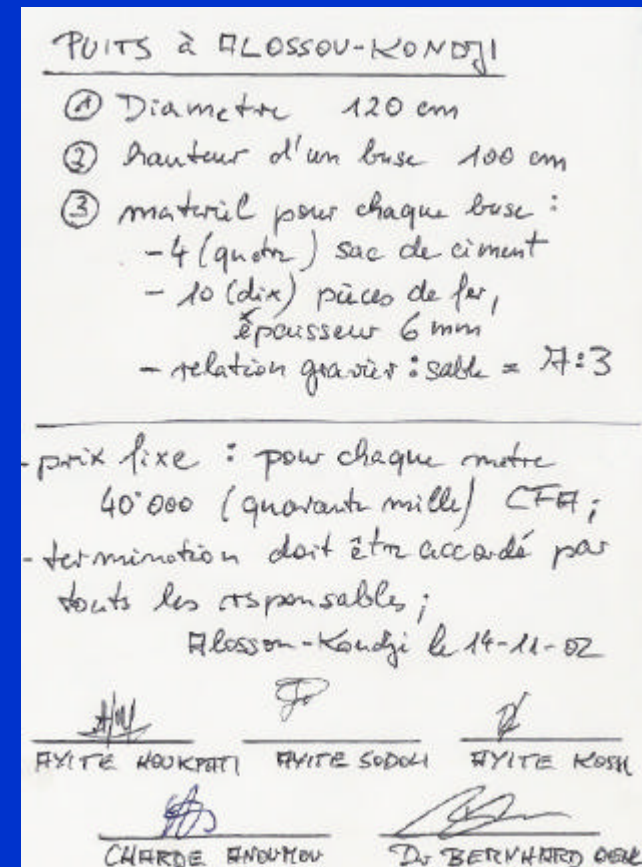 PUITS à ALOSSOU-KONDJI
① Diametre 120 cm
② hauteur d'un buse 100 cm
③ materiel pour chaque buse :
- 4 (quatr) sac de ciment
- 10 (dix) pièces de fer,
épausseur 6 mm
- relation gravier : sable = 7:3
- prix fixe : pour chaque metre
40'000 (quarante mille) CFA ;
- termination doit être accordé par
touts les responsables ;
Alossou-Kondji le 14-11-02
AYITE AYITE SODOLI AYITE KOSSI
CHARDE ANOUMOU Dr BERNHARD